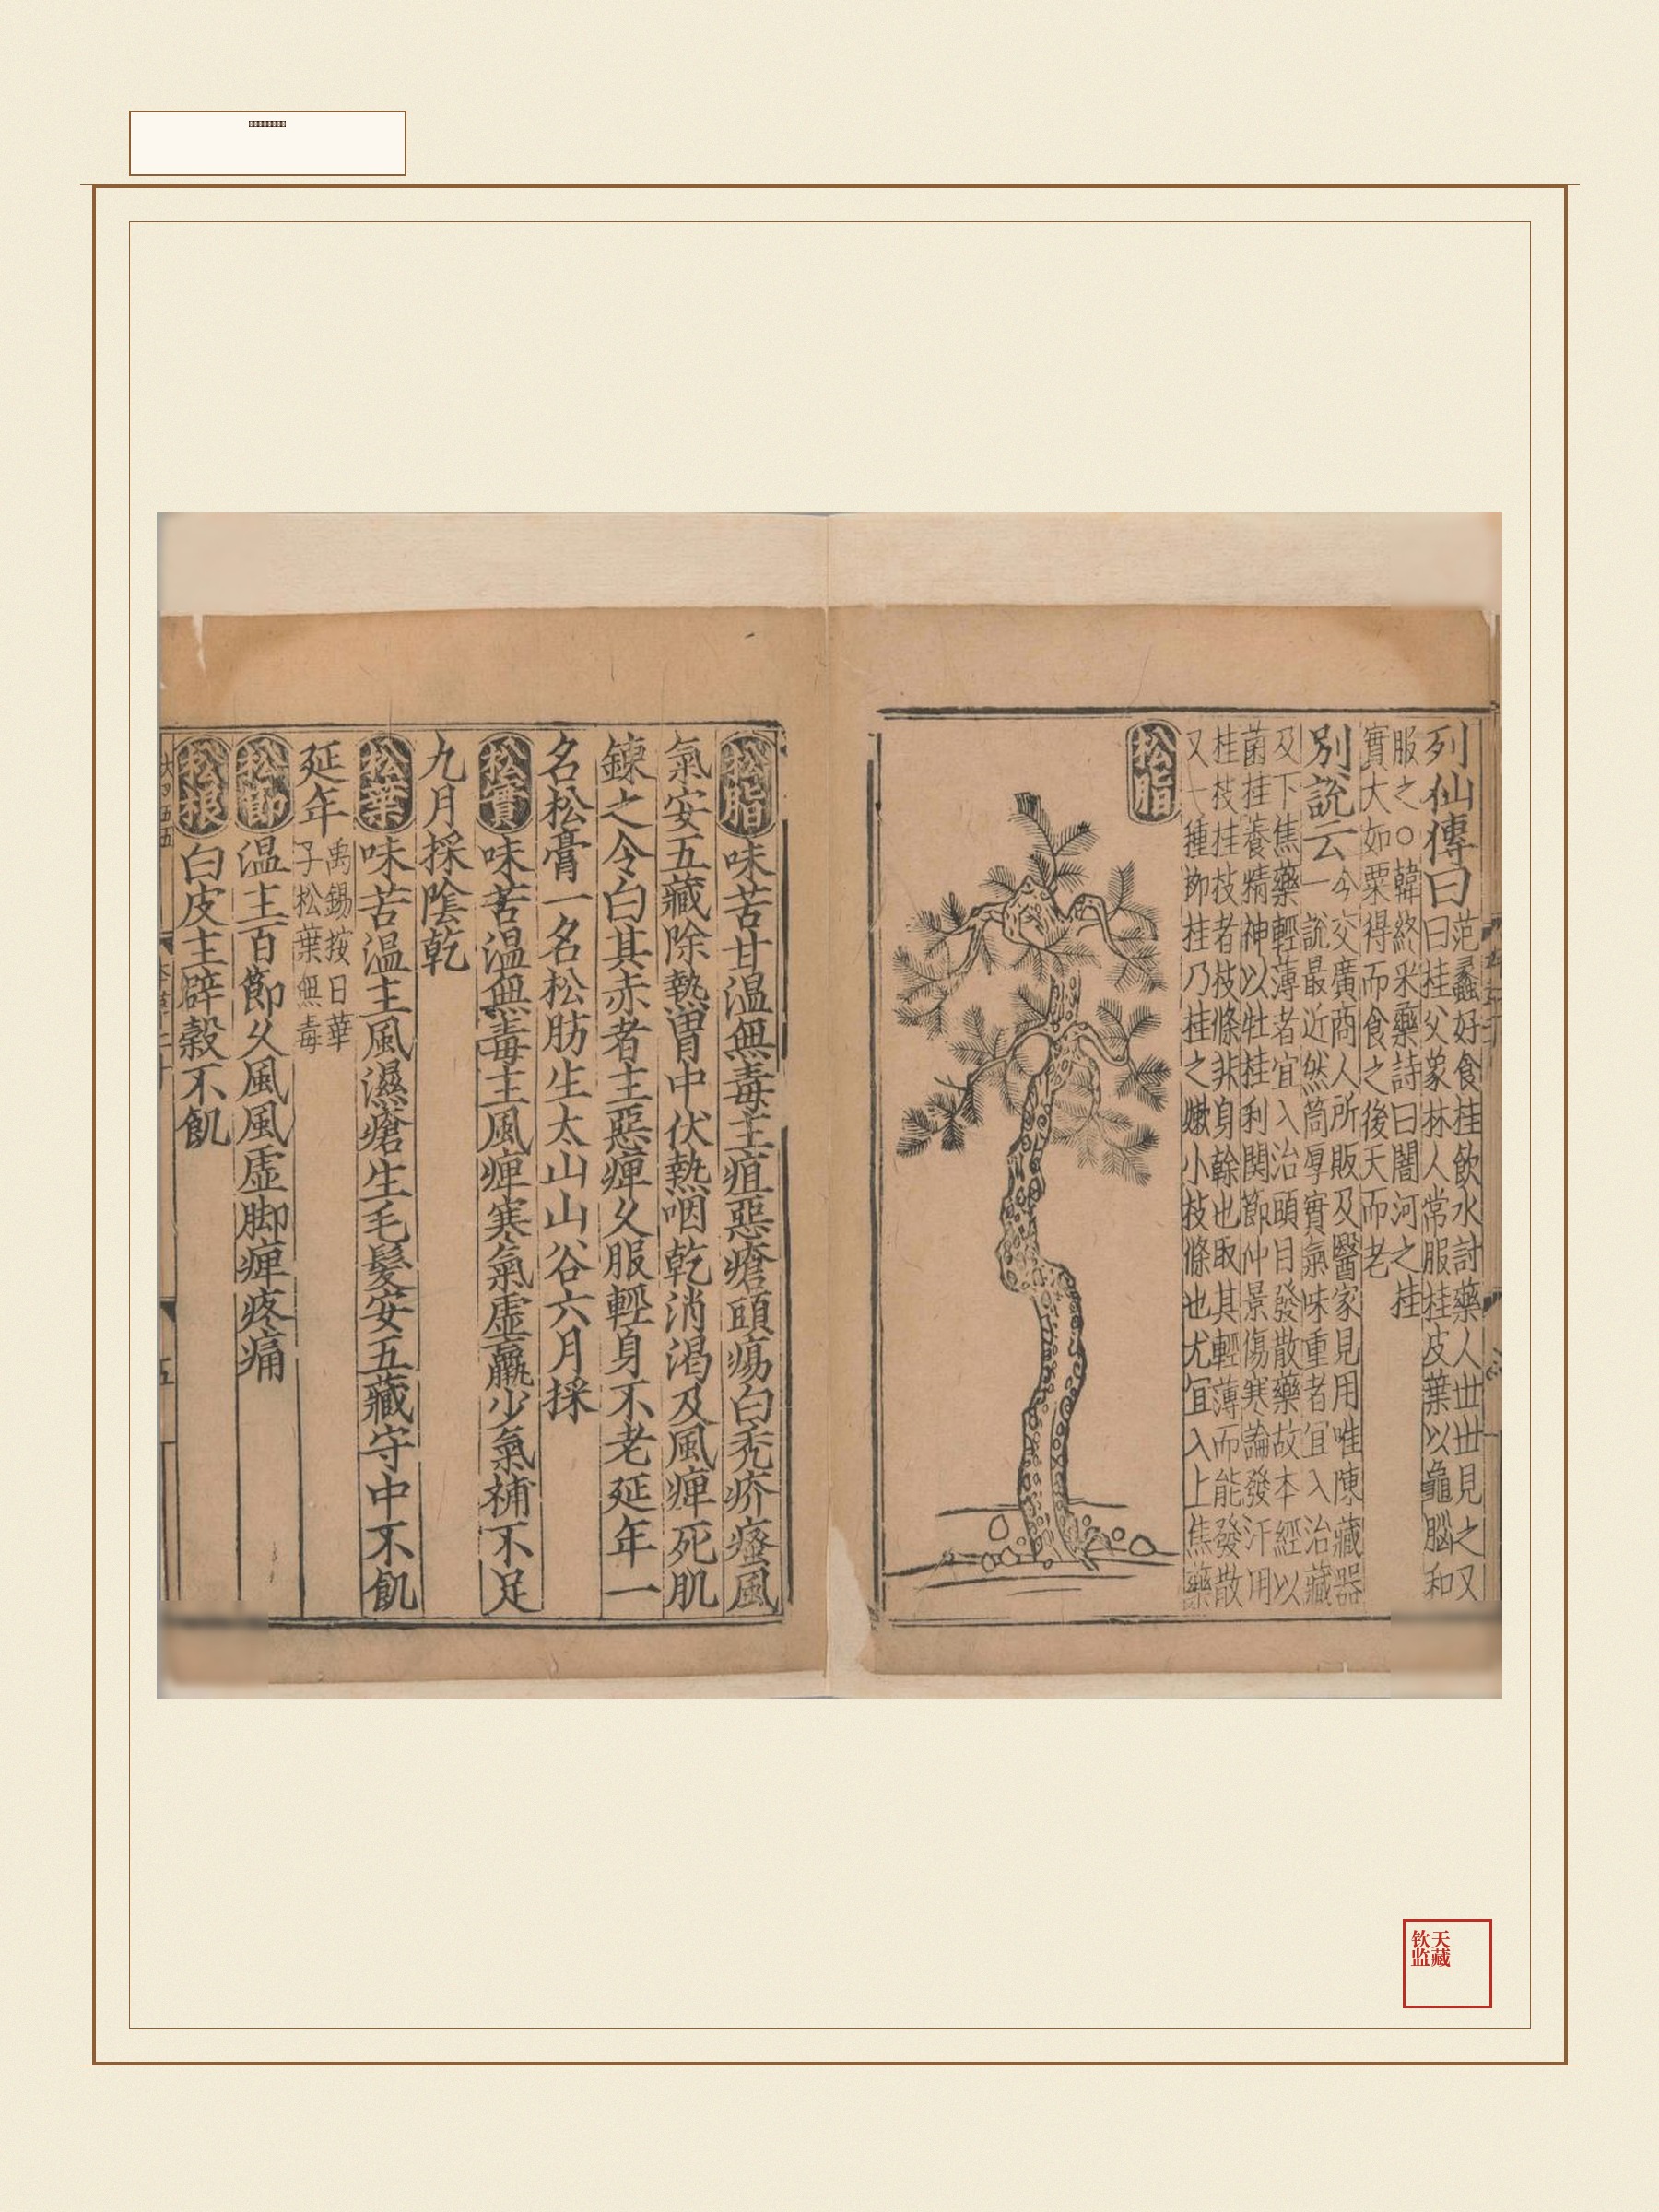 列仙傳曰
范蠡好食桂飲水討藥人丗丗見之又
曰桂父象林人常服桂皮葉以龜腦和
服之○韓終采藥詩曰闇河之桂
實大如栗得而食之後天而老
別說云
今交廣商人所販及醫家見用唯陳藏器
一說最近然筒厚實氣味重者宜入治藏
及下焦藥輕薄者宜入治頭目發散藥故本經以
菌桂養精神以牡桂利関節仲景傷寒論發汗用
桂枝桂枝者枝條非身榦也取其輕薄而能發散
又一種栁桂乃桂之嫩小枝條也尤宜入上焦藥
松脂
松脂味苦甘温無毒主疽惡瘡頭瘍白禿疥瘙風
氣安五藏除熱胃中伏熱咽乾消渴及風痺死肌
鍊之令白其赤者主惡痺久服輕身不老延年一
名松膏一名松肪生太山山谷六月採
松實味苦温無毒主風痺寒氣虛羸少氣補不足
九月採陰乾
松葉味苦温主風濕瘡生毛髮安五藏守中不飢
延年
禹錫按日華
子松葉無毒
松節温主百節久風風虛脚痺疼痛
松根白皮主辟穀不飢
钦天
监藏